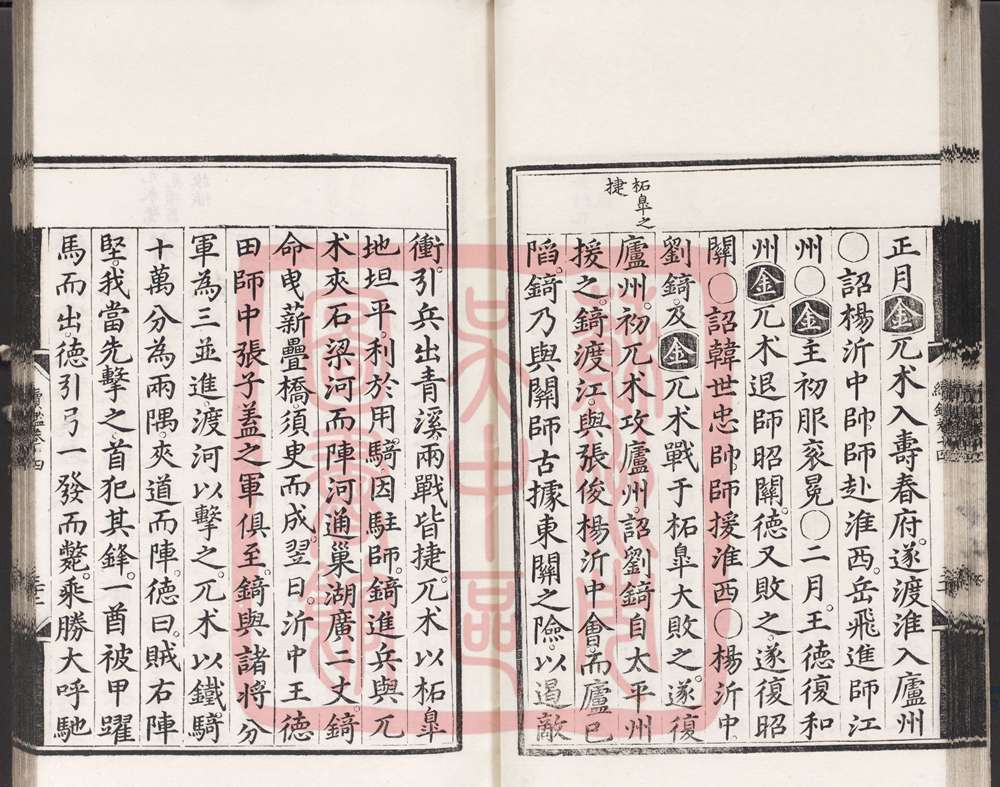 正月金兀朮入壽春府。遂渡淮入廬州
〇詔楊沂中帥。師赴淮西。岳飛進師江
州〇金主初服衮冕〇二月。王德復和
州金兀朮退師昭關。德又敗之。遂復昭
關〇詔韓世忠帥。師援淮西〇楊沂中。
劉錡。及金兀朮戰于柘臯大敗之。遂復
柘臯之
捷
廬州。初兀朮攻廬州。詔劉錡自太平州
援之。錡渡江。與張俊楊沂中會。而廬已
陷。錡乃與關師古據東關之險。以遏敵
衝。引兵出青溪。兩戰皆捷。兀朮以柘臯
地坦平。利於用騎。因駐師。錡進兵與兀
朮夾石梁河而陣。河通巢湖廣二丈。錡
命曳薪疊橋。須臾而成。翌日。沂中王德
田師中張子蓋之軍俱至。錡與諸將分
軍為三並進。渡河以擊之。兀朮以鐵騎
十萬分為兩隅。夾道而陣。德曰。賊右陣
堅。我當先擊之。首犯其鋒。一酋被甲躍
馬而出。德引弓一發而斃。乘勝大呼馳